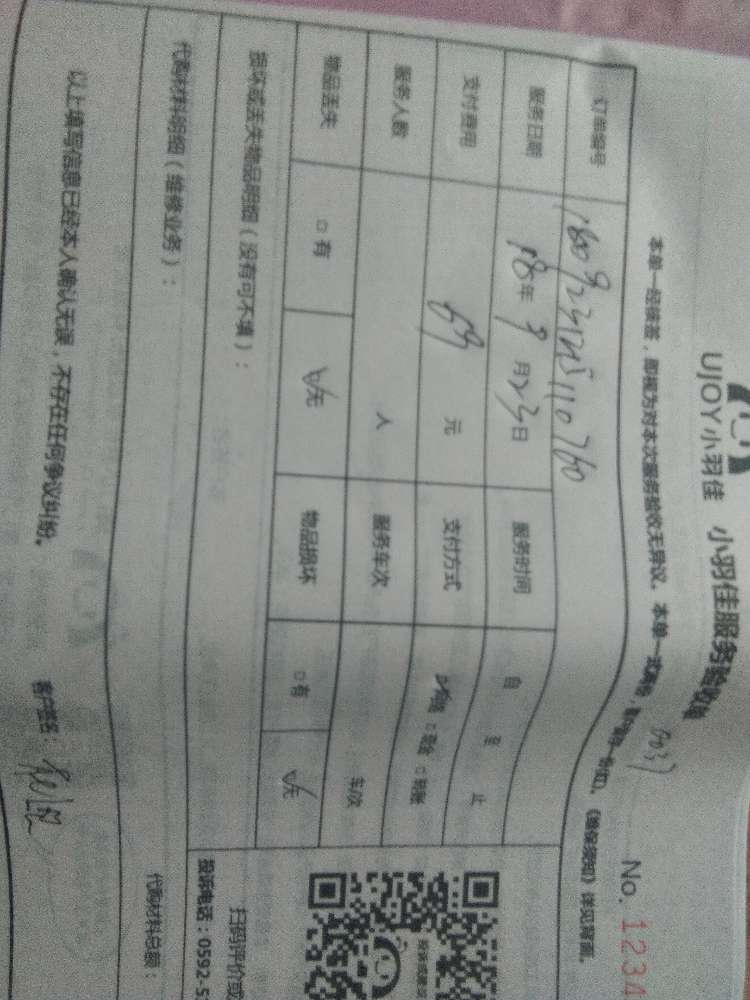 UJOY小羽佳 小羽佳服务验收单
No. 1234
本单一经续签，即视为对本次服务验收无异议。本单一式两份，客户留存一份(红)。《维保须知》详见背面。
订单编号
服务日期 18年9月23日 服务时间 自 至 止
支付费用 69元 支付方式 现金 □ 转账
服务人数 人 服务车次 车次
物品丢失 □有 ☑无 物品损坏 □有 ☑无
损坏或丢失物品明细（没有可不填）：
扫码评价或
投诉电话：0592-5
代购材料明细（维修业务）：
代购材料总额：
以上填写信息已经本人确认无误，不存在任何争议纠纷。 客户签名：